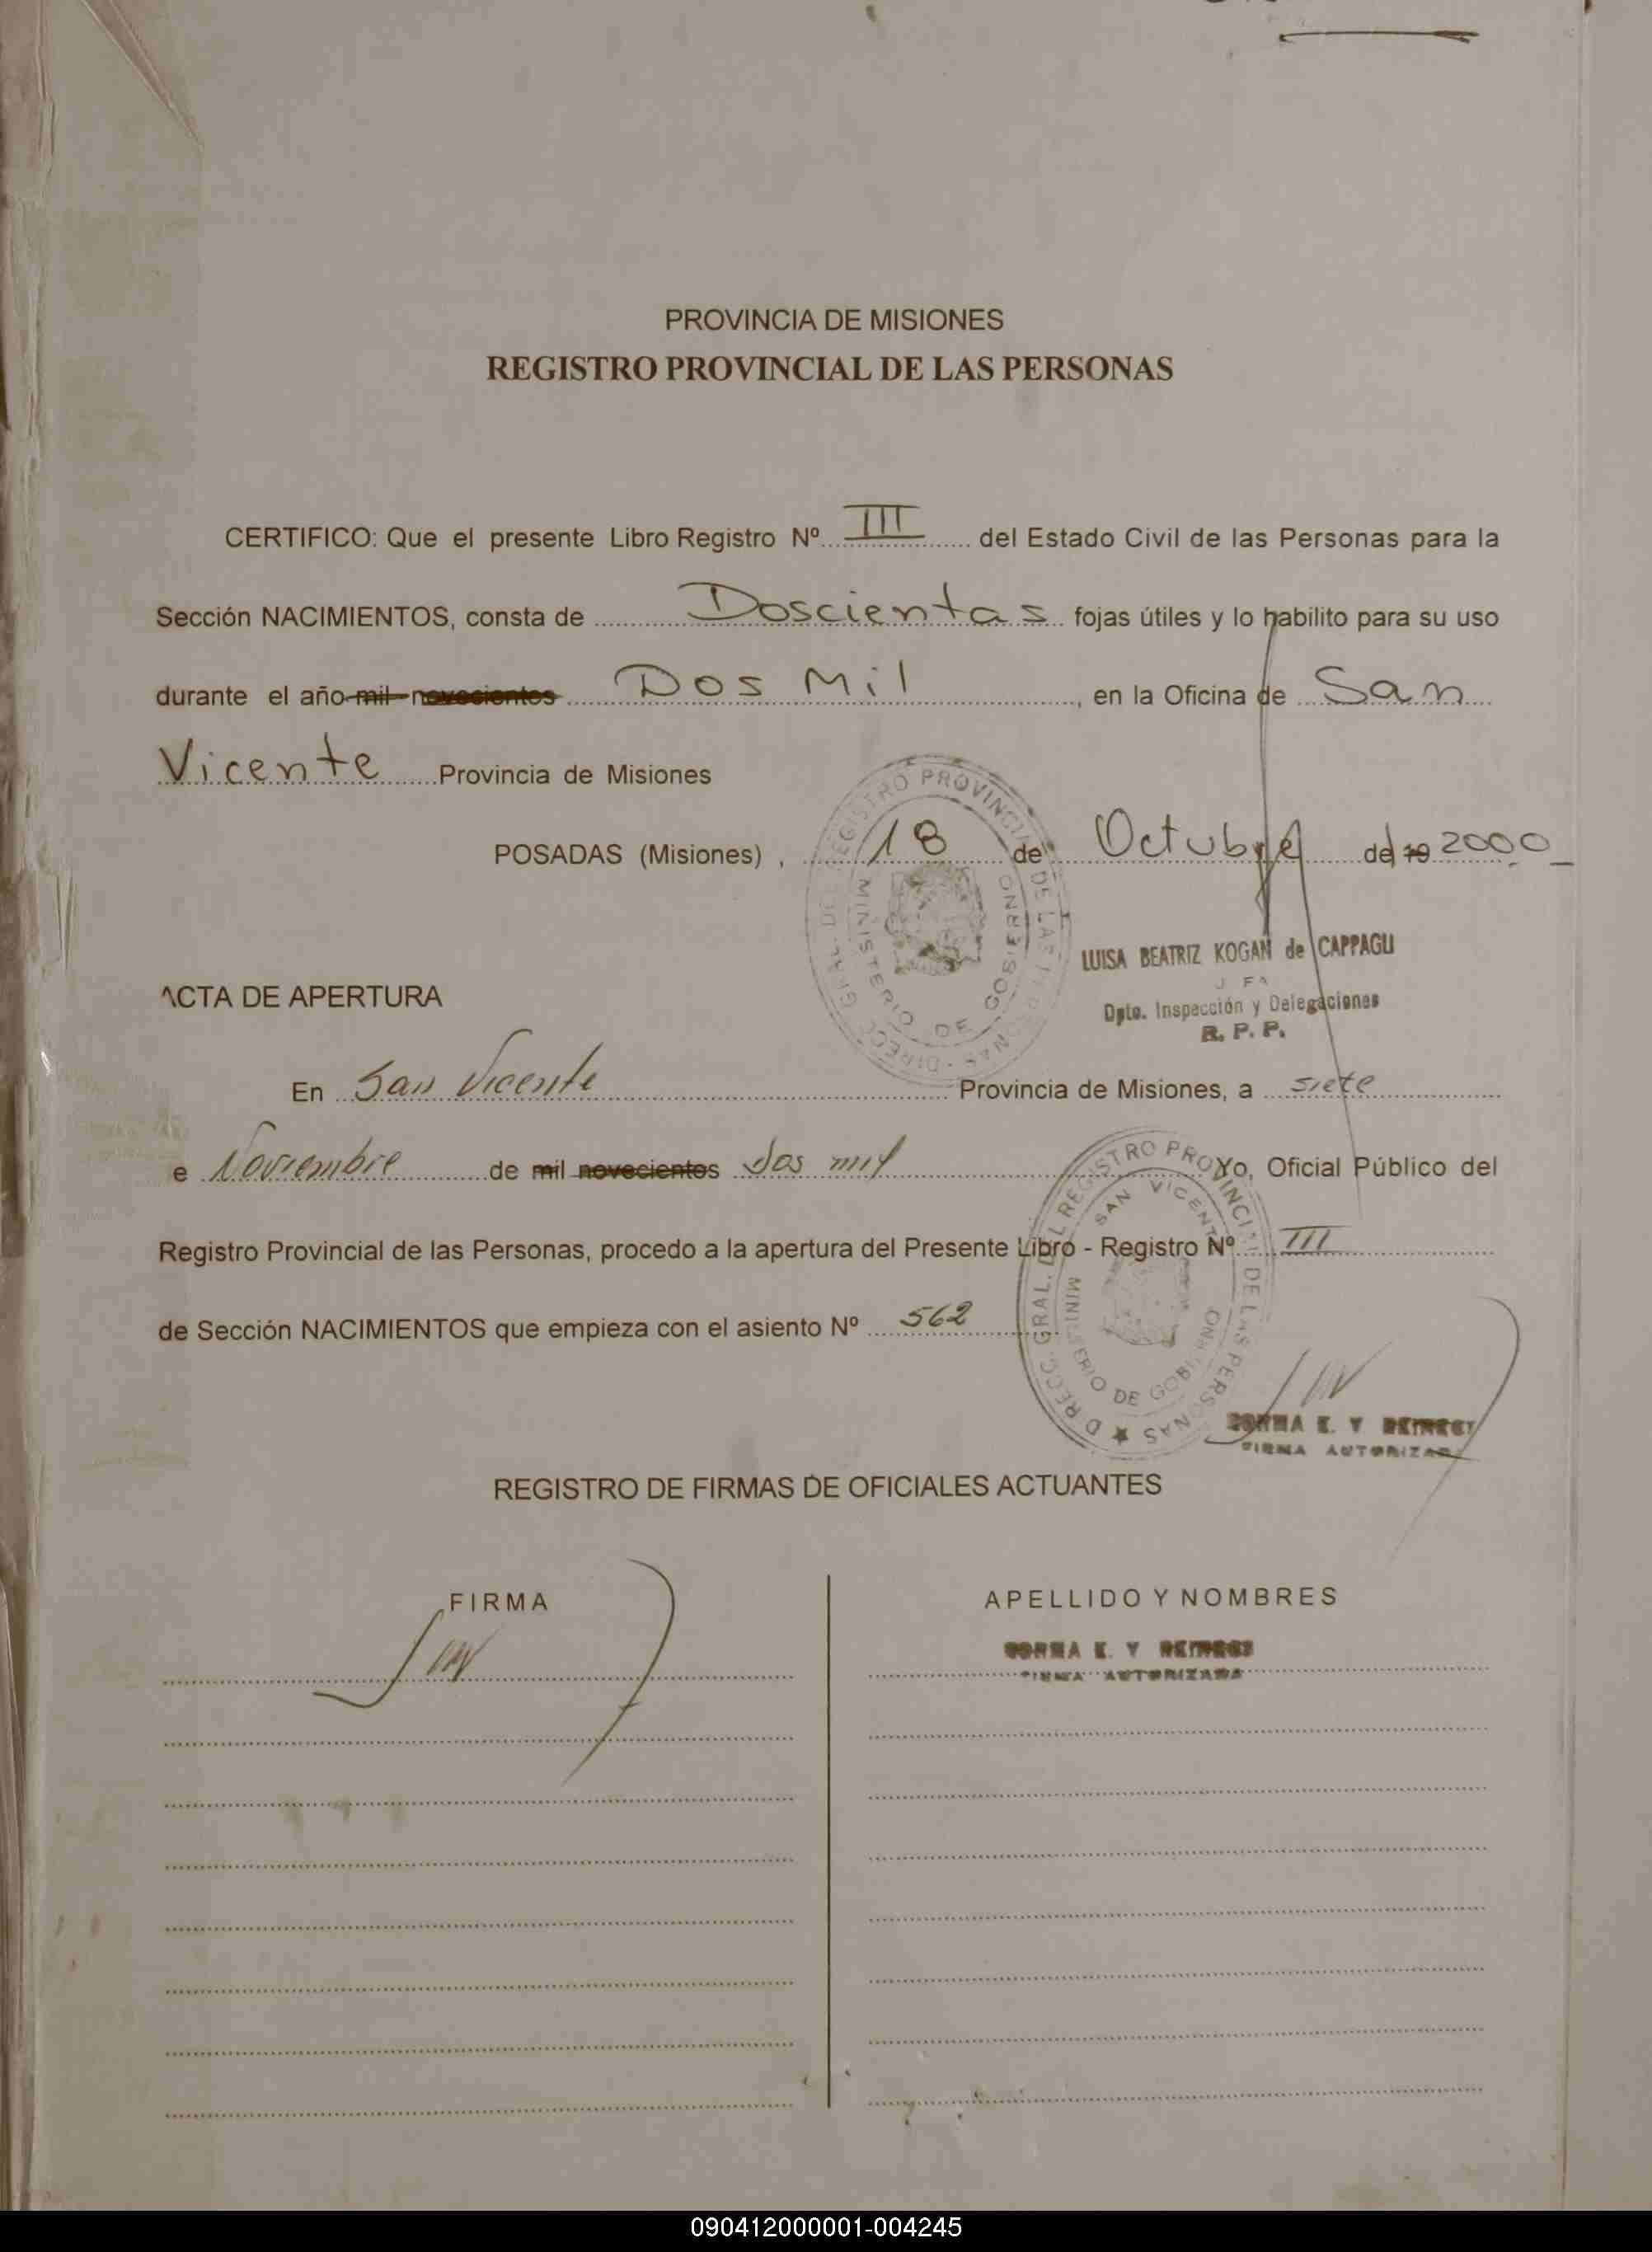 PROVINCIA DE MISIONES
REGISTRO PROVINCIAL DE LAS PERSONAS
CERTIFICO: Que el presente Libro Registro Nº III del Estado Civil de las Personas para la
Sección NACIMIENTOS, consta de Doscientas fojas útiles y lo habilito para su uso
durante el año mil novecientos Dos Mil, en la Oficina de San
Vicente Provincia de Misiones
POSADAS (Misiones), 18 de Octubre de 19 2000
DIRECC. GRAL. DEL REGISTRO PROVINCIAL DE LAS PERSONAS
MINISTERIO DE GOBIERNO
LUISA BEATRIZ KOGAN de CAPPAGLI
Dpto. Inspección y Delegaciones
R. P. P.
ACTA DE APERTURA
En San Vicente Provincia de Misiones, a siete
e Noviembre de mil novecientos dos mil Yo, Oficial Público del
Registro Provincial de las Personas, procedo a la apertura del Presente Libro - Registro Nº III
de Sección NACIMIENTOS que empieza con el asiento Nº 562
DIRECC. GRAL. DEL REGISTRO PROVINCIAL DE LAS PERSONAS
SAN VICENTE
MINISTERIO DE GOBIERNO
E. Y
FIRMA AUTORIZADA
REGISTRO DE FIRMAS DE OFICIALES ACTUANTES
FIRMA
APELLIDO Y NOMBRES
E. Y
FIRMA AUTORIZADA
090412000001-004245